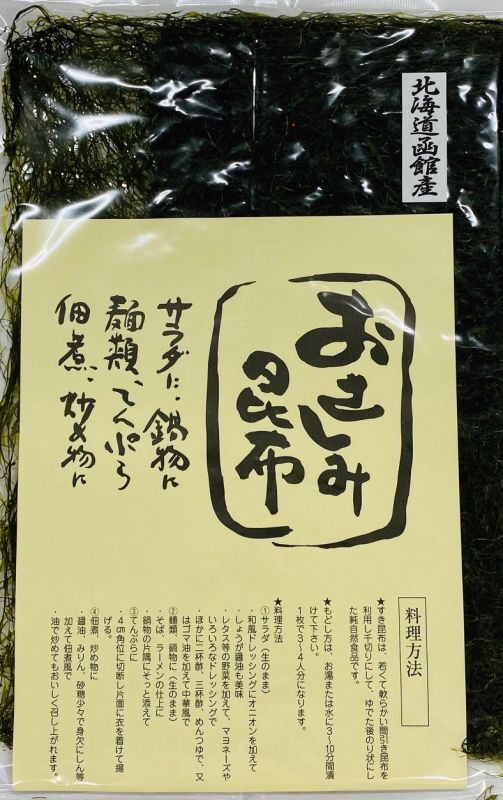 北海道函館産
おさしみ
昆布
サラダに、鍋物に
麺類、てんぷら
佃煮、炒め物に
料理方法
★すき昆布は、若くて軟らかい間引き昆布を
利用し千切りにして、ゆでた後のり状にし
た純自然食品です。
★もどし方は、お湯または水に3~10分間漬
けて下さい。
1枚で3~4人分になります。
★料理方法
①サラダ(生のまま)
・和風ドレッシングにオニオンを加えて
・しょうが醤油も美味
・レタス等の野菜を加えて、マヨネーズや
いろいろなドレッシングで
・ほかに二杯酢、三杯酢、めんつゆで、又
はゴマ油を加えて中華風で
②麺類、鍋物に(生のまま)
・そば、ラーメンの仕上に
・鍋物の片隅にそっと添えて
③てんぷらに
・4cm角位に切断し片面に衣を着けて揚
げる。
④佃煮、炒め物に
・醤油、みりん、砂糖少々で身欠にしん等
加えて佃煮風で
・油で炒めてもおいしく召し上がれます。